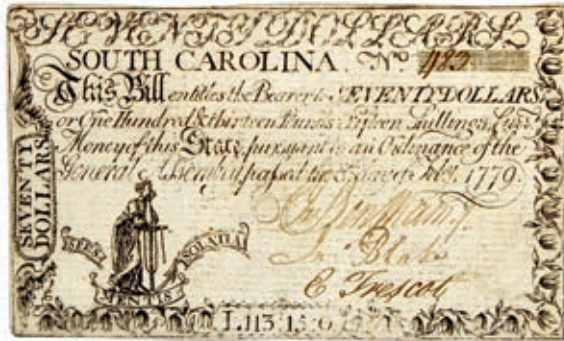 SEVENTY DOLLARS
SOUTH CAROLINA No. 1483
This Bill entitles the Bearer to SEVENTY DOLLARS
or One Hundred & thirteen Pounds Fifteen Shillings, Curr.
Money of this State, pursuant to an Ordinance of the
General Assembly passed the 8 Day of Feby. 1779.
SEVENTY
DOLLARS
SOLATIA
MENTIS
Jno. Blake
E Trescot
L.113:15:0